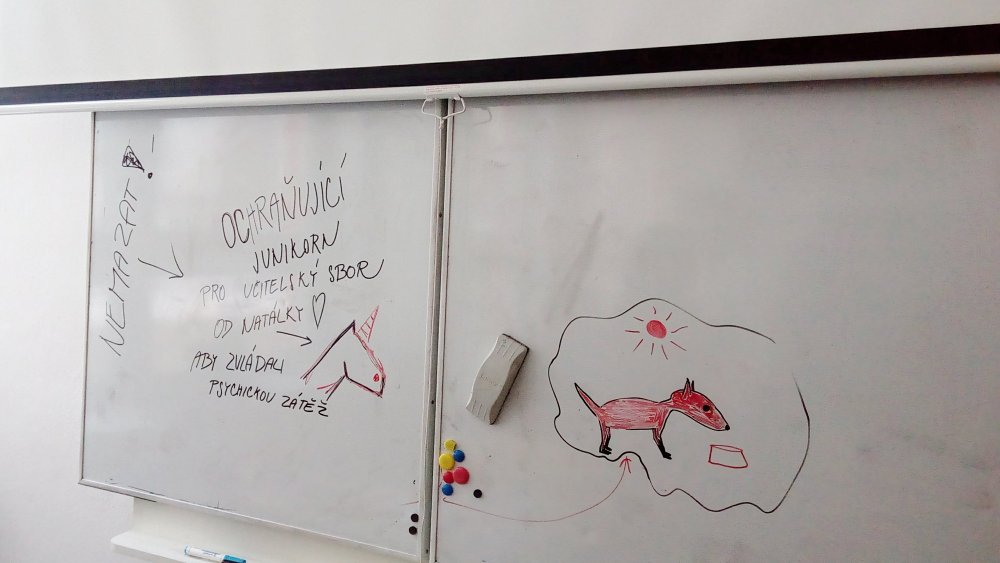 NEMAZAT!
OCHRAŇUJÍCÍ
JUNIKORN
PRO UČITELSKÝ SBOR
OD NATÁLKY ♡
ABY ZVLÁDALI
PSYCHICKOU ZÁTĚŽ